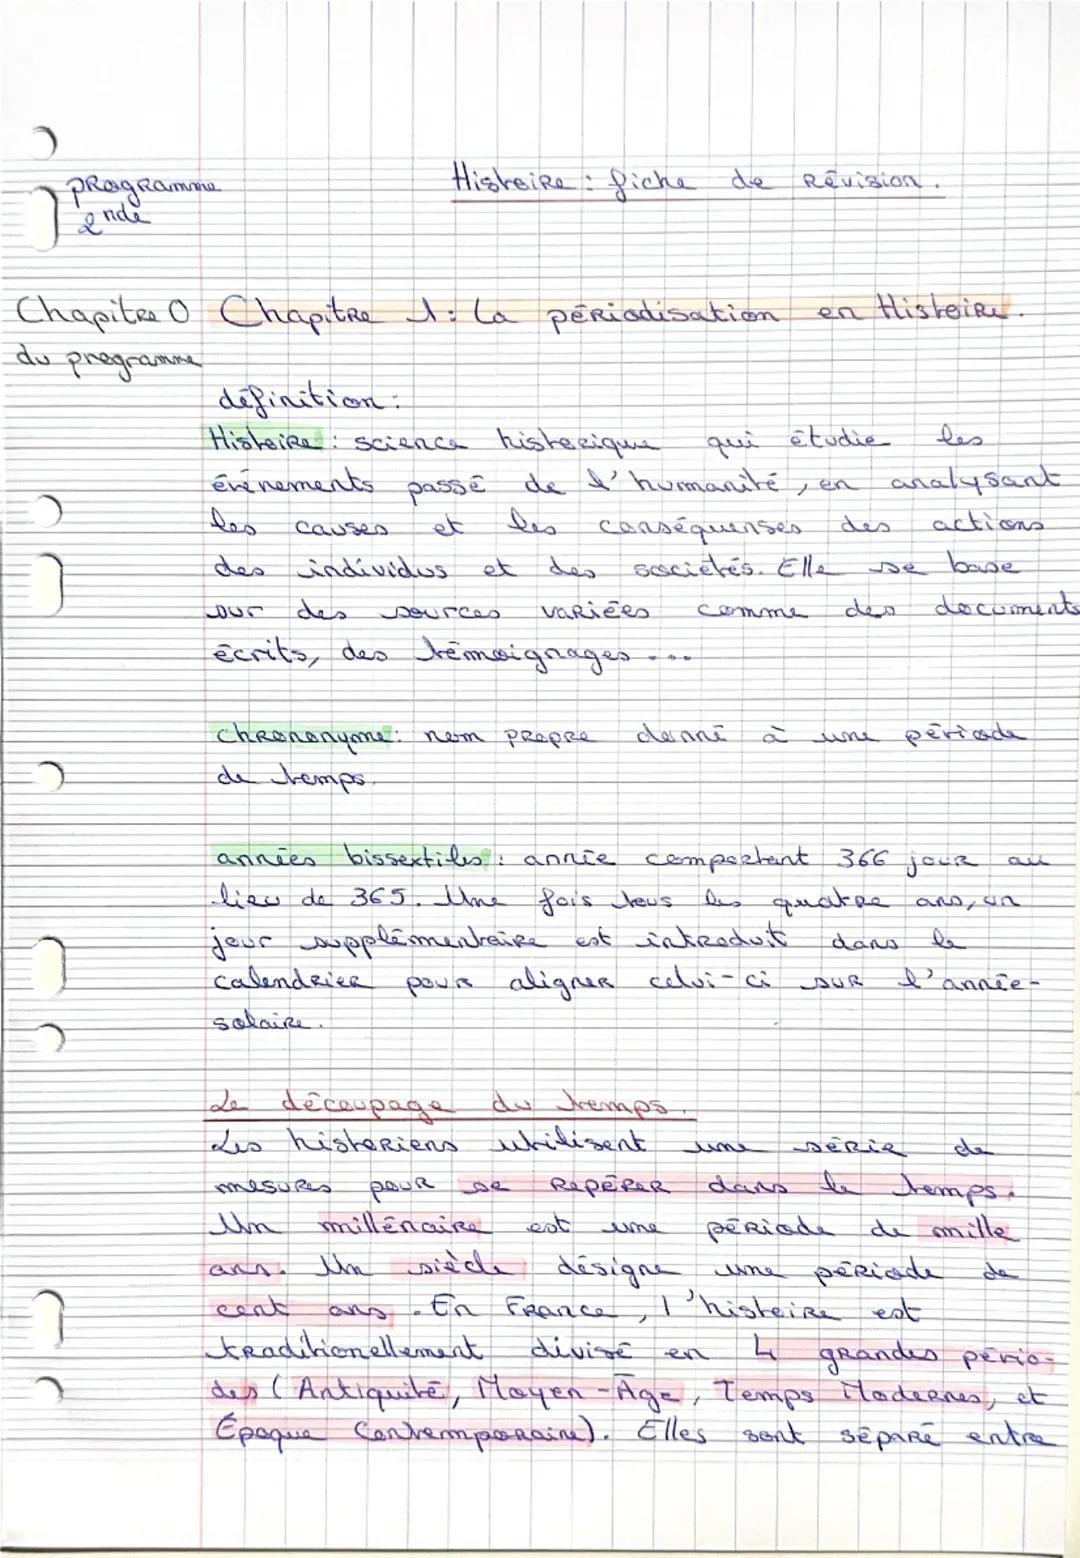 programme
2nde
Histoire : fiche de Révision.
Chapitre 0
du programme
Chapitre 1 : La périodisation en Histoire.
définition :
Histoire : science historique qui étudie les
événements passé de l'humanité, en analysant
les causes et les conséquenses des actions
des individus et des sociétés. Elle se base
sur des sources variées comme des documents
écrits, des témoignages ...
chrononyme : nom propre donné à une période
de temps.
années bissextiles : année comportant 366 jour au
lieu de 365. Une fois tous les quatre ans, un
jour supplémentaire est introduit dans le
calendrier pour aligner celui-ci sur l'année-
solaire.
Le découpage du temps.
Les historiens utilisent une série de
mesures pour se repérer dans le temps.
Un millénaire est une période de mille
ans. Un siècle désigne une période de
cent ans. En France, l'histoire est
traditionellement divisé en 4 grandes pério-
des (Antiquité, Moyen-Âge, Temps Modernes, et
Époque Contemporaine). Elles sont séparé entre